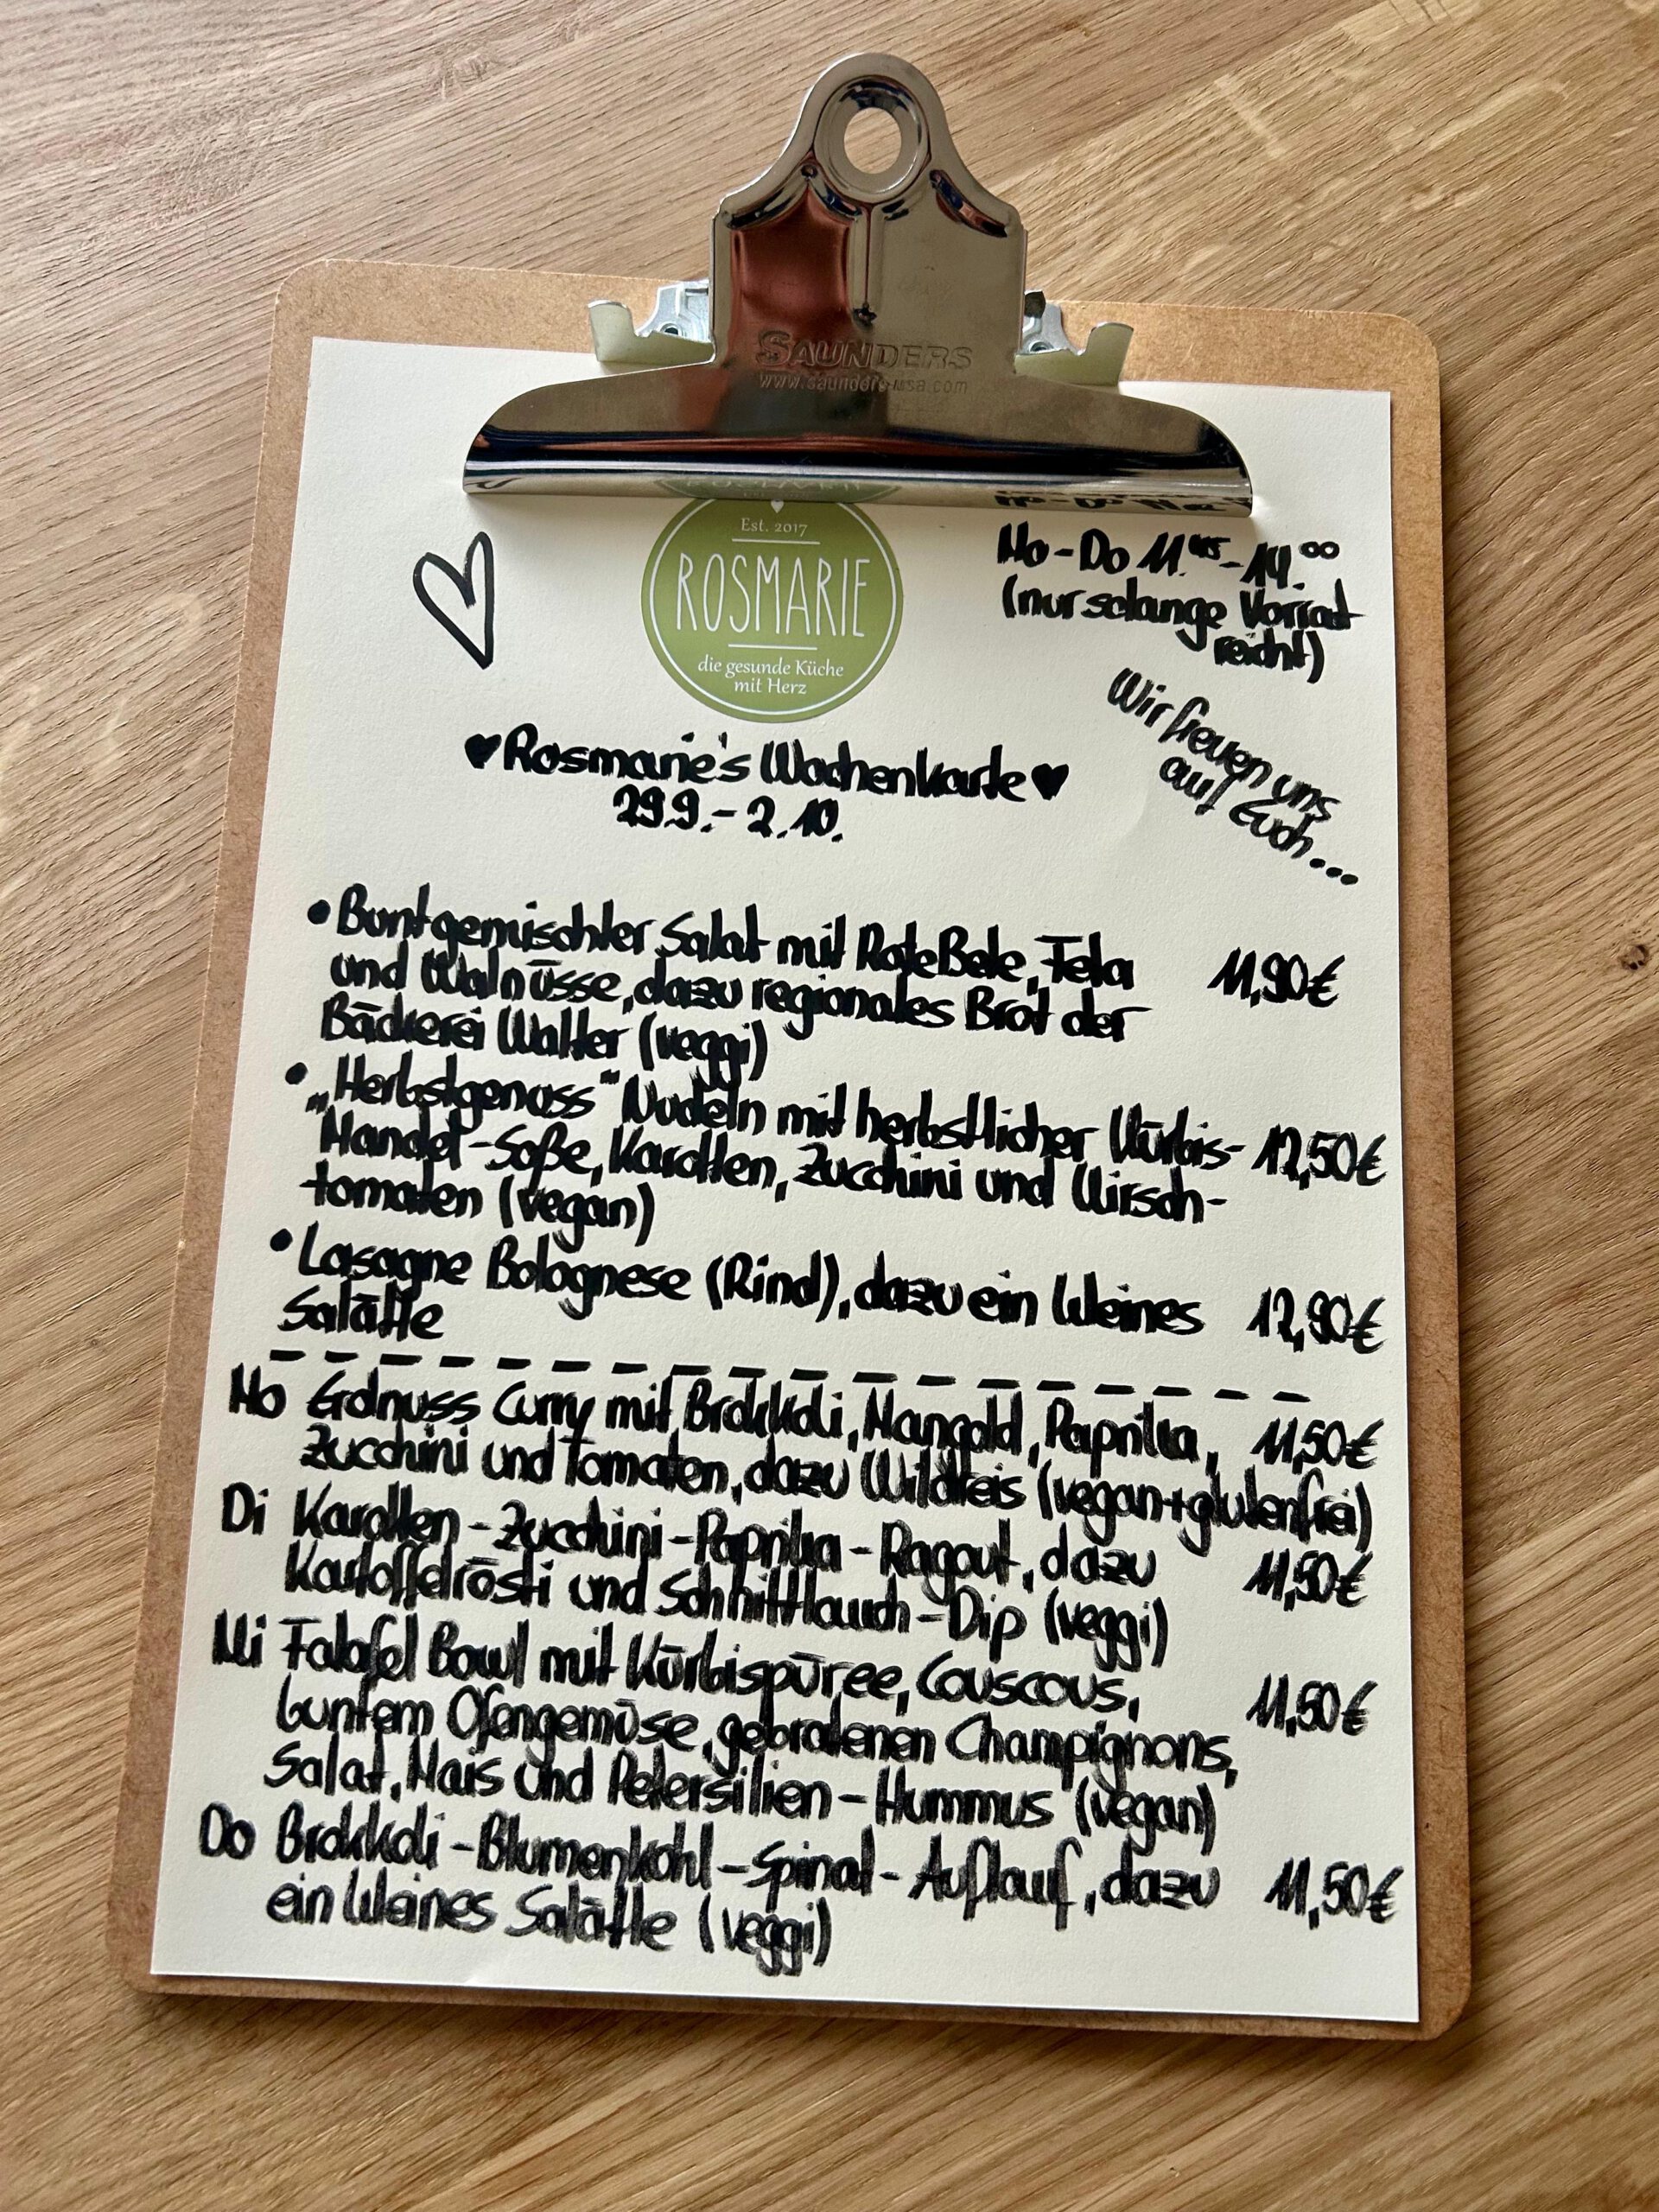 SAUNDERS
www.saunders-usa.com
Est. 2017
ROSMARIE
die gesunde Küche
mit Herz
Mo-Do 11.45-14.00
(nur solange Vorrat
reicht)
Wir freuen uns
auf Euch...
♥Rosmarie's Wochenkarte♥
29.9.-2.10.
• Buntgemischter Salat mit Rote Bete, Feta 11,90€
und Walnüsse, dazu regionales Brot der
Bäckerei Walter (veggi)
• „Herbstgenuss" Nudeln mit herbstlicher Kürbis- 12,50€
Mandel-Soße, Karotten, Zucchini und Kirsch-
tomaten (vegan)
• Lasagne Bolognese (Rind), dazu ein kleines 12,90€
Salätle
Mo Erdnuss Curry mit Brokkoli, Mangold, Paprika, 11,50€
Zucchini und Tomaten, dazu Wildreis (vegan+glutenfrei)
Di Karotten-Zucchini-Paprika-Ragout, dazu 11,50€
Kartoffelrösti und Schnittlauch-Dip (veggi)
Mi Falafel Bowl mit Kürbispüree, Couscous, 11,50€
buntem Ofengemüse, gebratenen Champignons,
Salat, Mais und Petersilien-Hummus (vegan)
Do Brokkoli-Blumenkohl-Spinat-Auflauf, dazu 11,50€
ein kleines Salätle (veggi)